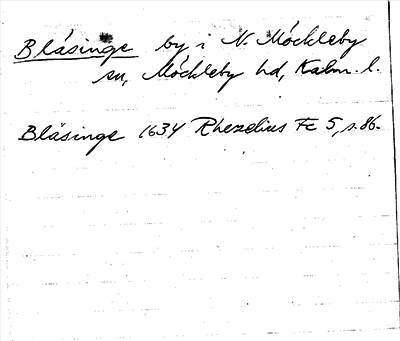 Bläsinge by i N. Möckleby
sn, Möckleby hd, Kalm. l.
Bläsinge 1634 Rhezelius Fc 5, s. 86.